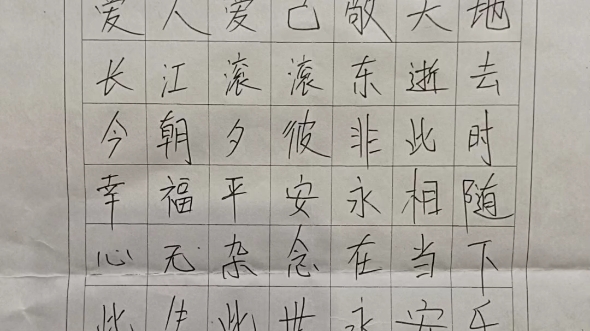 爱人爱己敬天地
长江滚滚东逝去
今朝夕彼非此时
幸福平安永相随
心无杂念在当下
此生此世永安乐